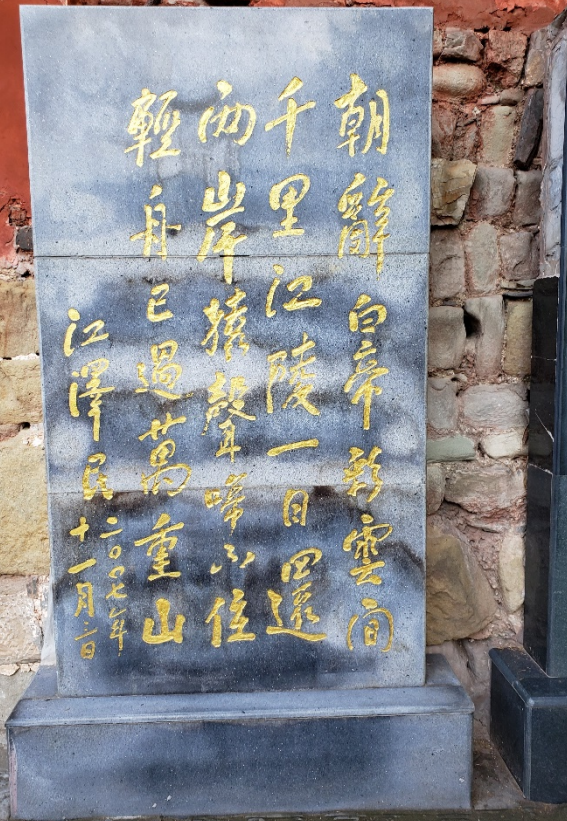 朝辭白帝彩雲間
千里江陵一日還
兩岸猿聲啼不住
輕舟已過萬重山
江澤民
二〇〇七年
十一月三日